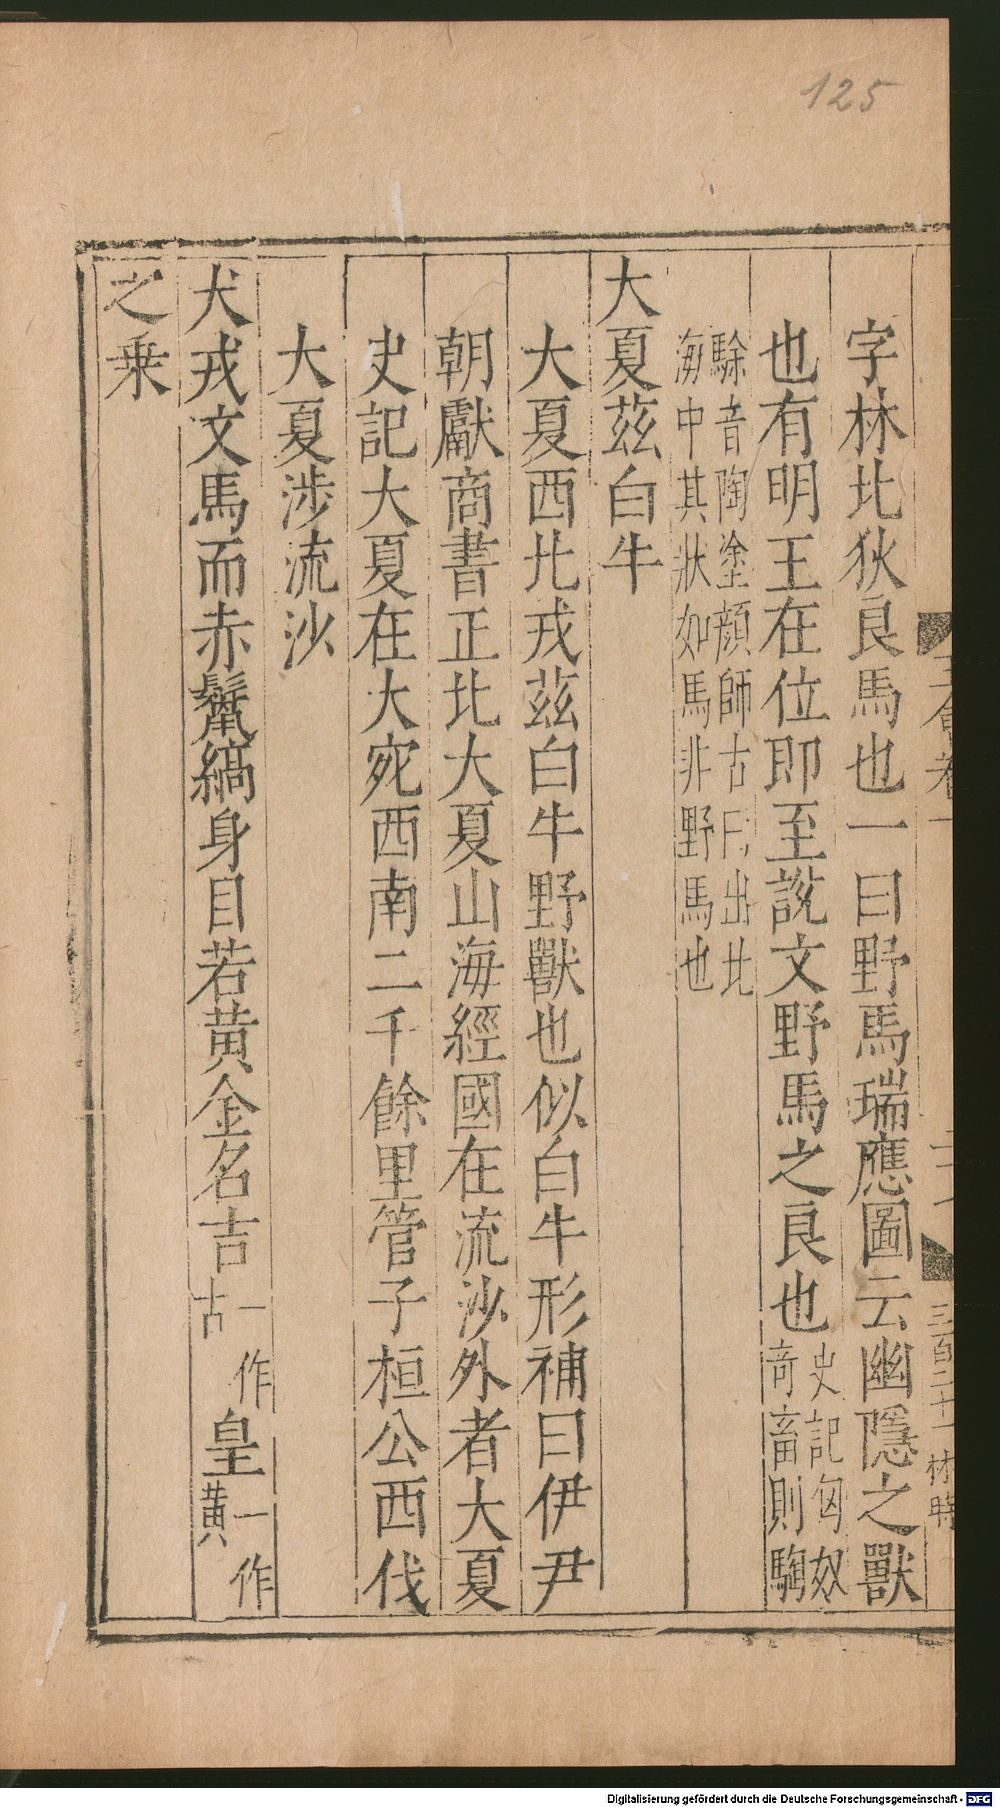 125
字林北狄良馬也一曰野馬瑞應圖云幽隱之獸
也有明王在位即至說文野馬之良也史記匈奴奇畜則騊
駼音陶塗顔師古曰出北
海中其狀如馬非野馬也
大夏茲白牛
大夏西北戎茲白牛野獸也似白牛形補曰伊尹
朝獻商書正北大夏山海經國在流沙外者大夏
史記大夏在大宛西南二千餘里管子桓公西伐
大夏涉流沙
犬戎文馬而赤鬣縞身目若黄金名吉一作古皇一作黄
之乗
三百二十一
Digitalisierung gefördert durch die Deutsche Forschungsgemeinschaft - DFG